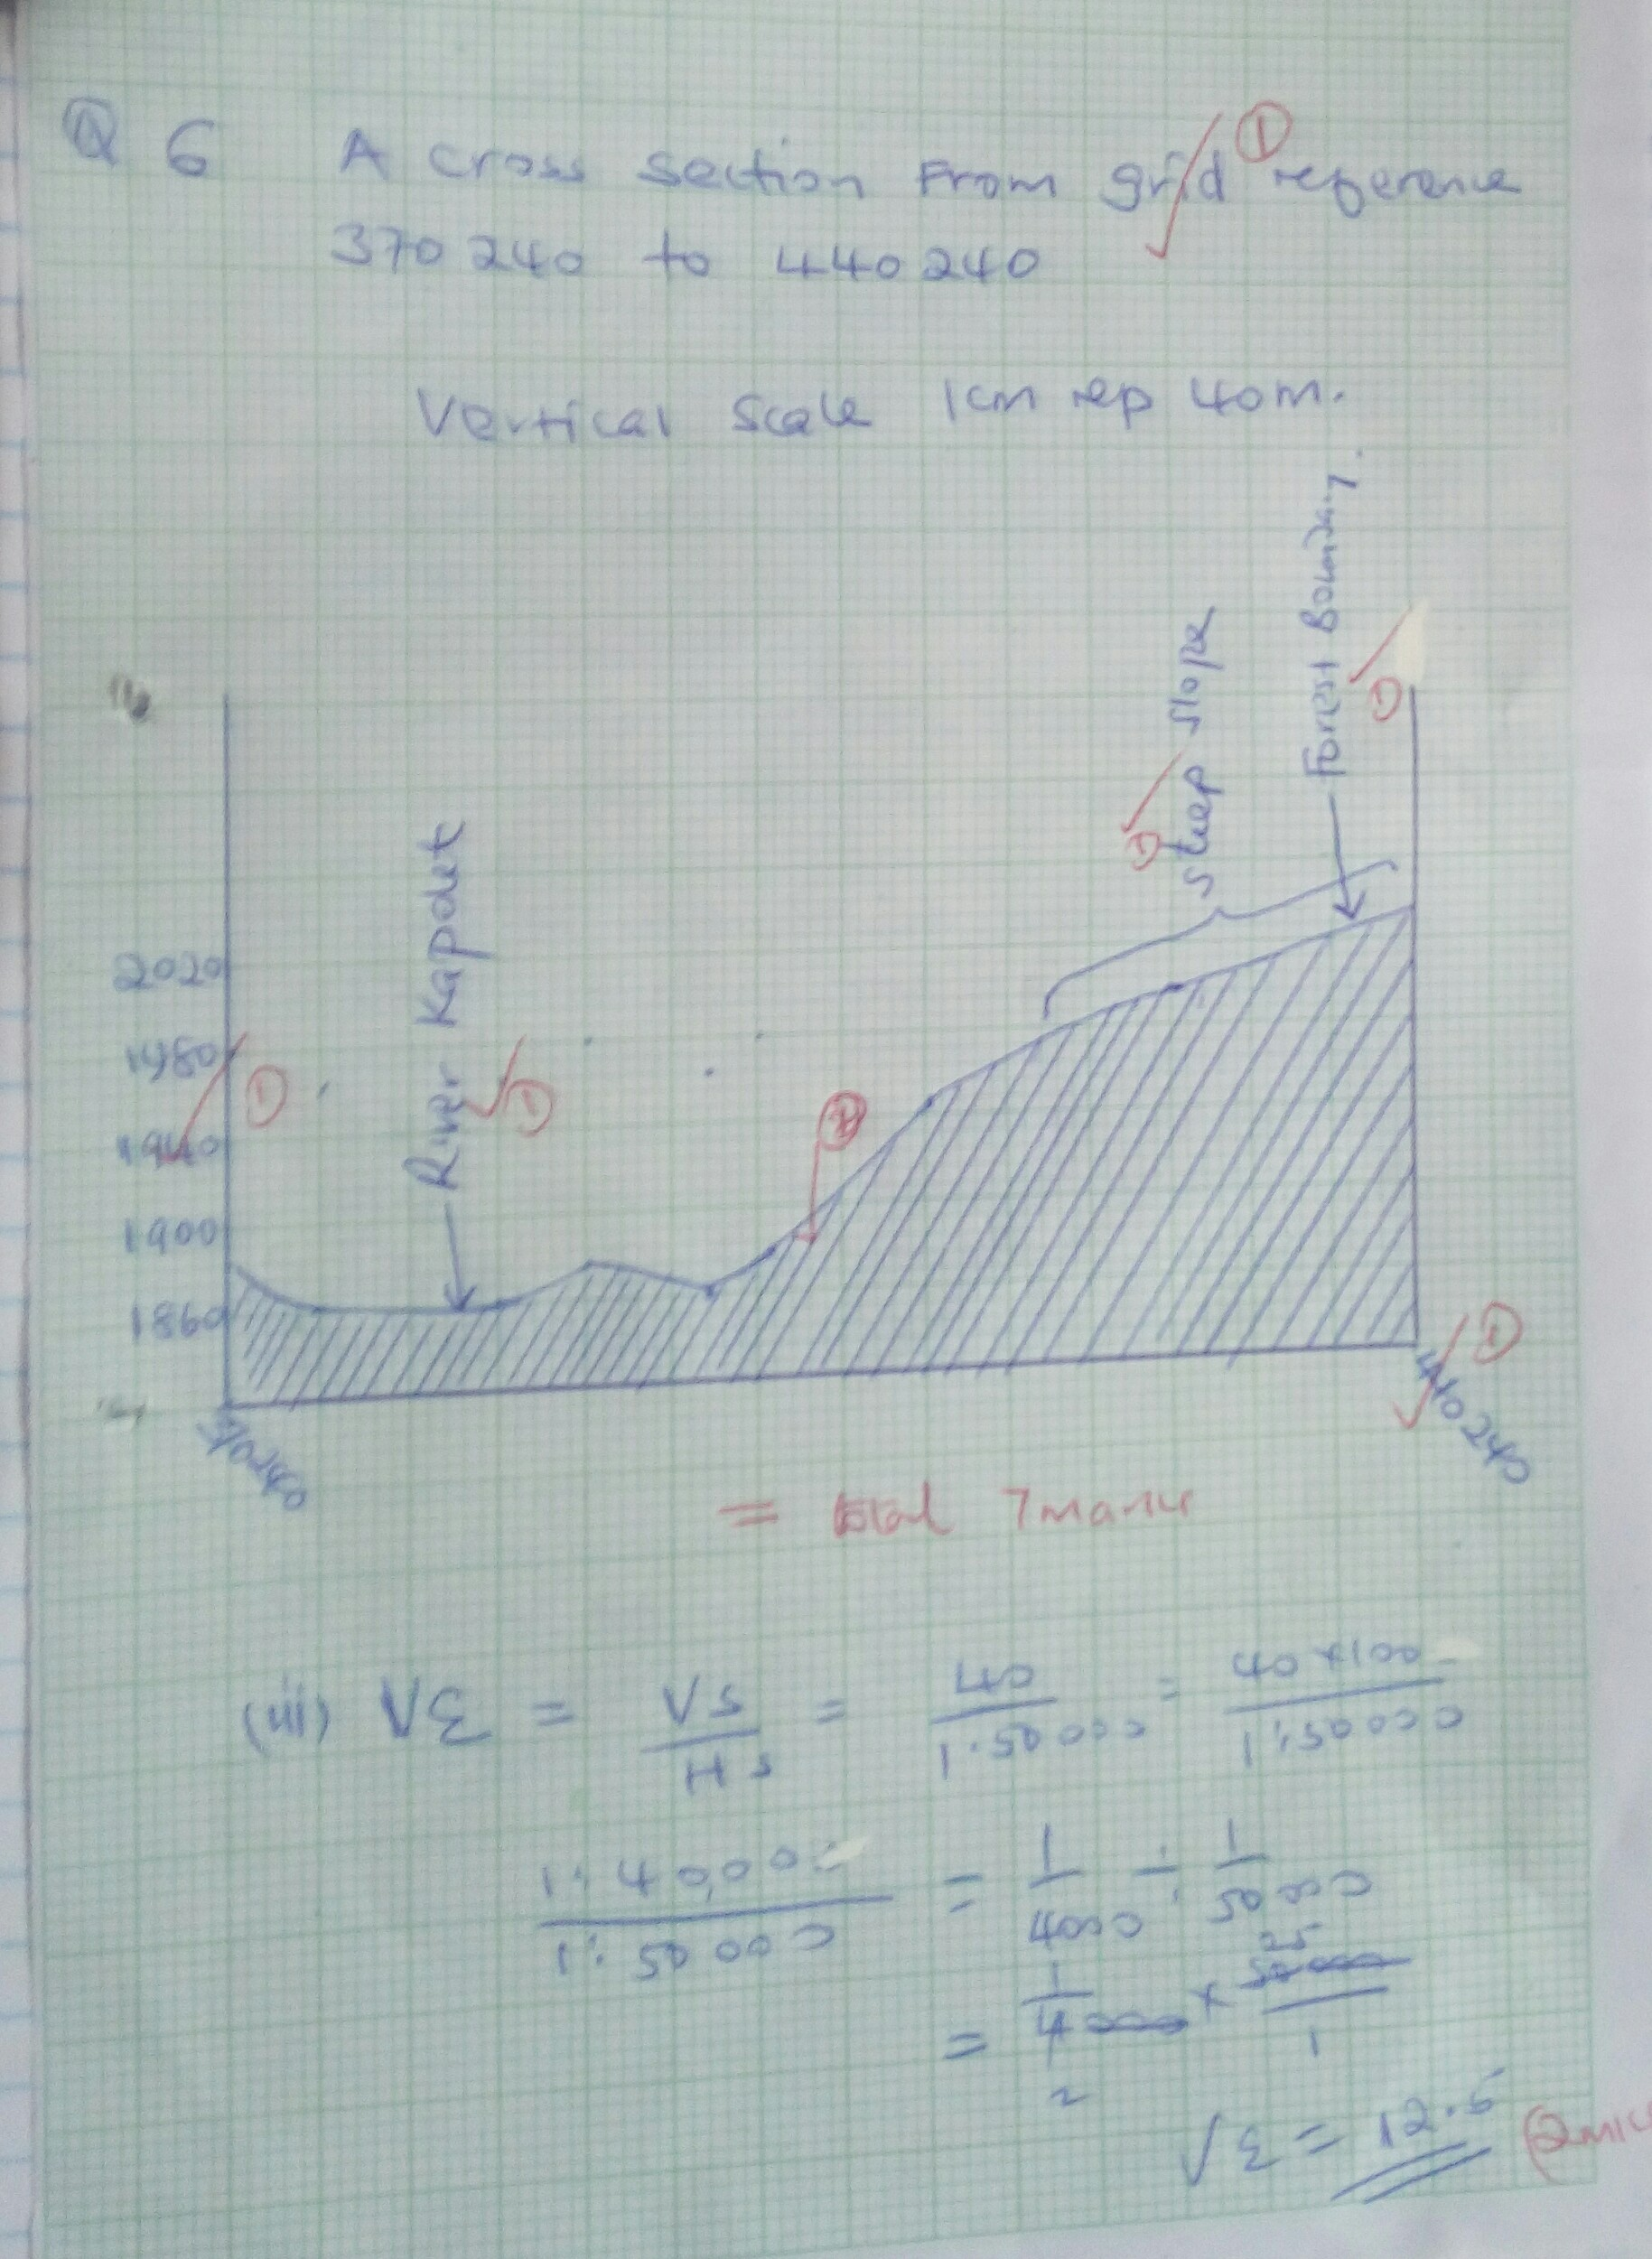 Q 6 A cross section From grid reference ①
370240 to 440240
Vertical Scale 1cm rep 40m.
Forest Boundary.
①
steep slope
①
River Kapdet
①
2020
1980
①
1940
1900
1860
①
370240
440240
= total 7marks
(iii) VE = VS/HS = 40/1:50000 = 40x100/1:50000
1:4000/1:50000 = 1/4000 ÷ 1/50000
= 1/4000 x 50000/1
25
2
VE = 12.5